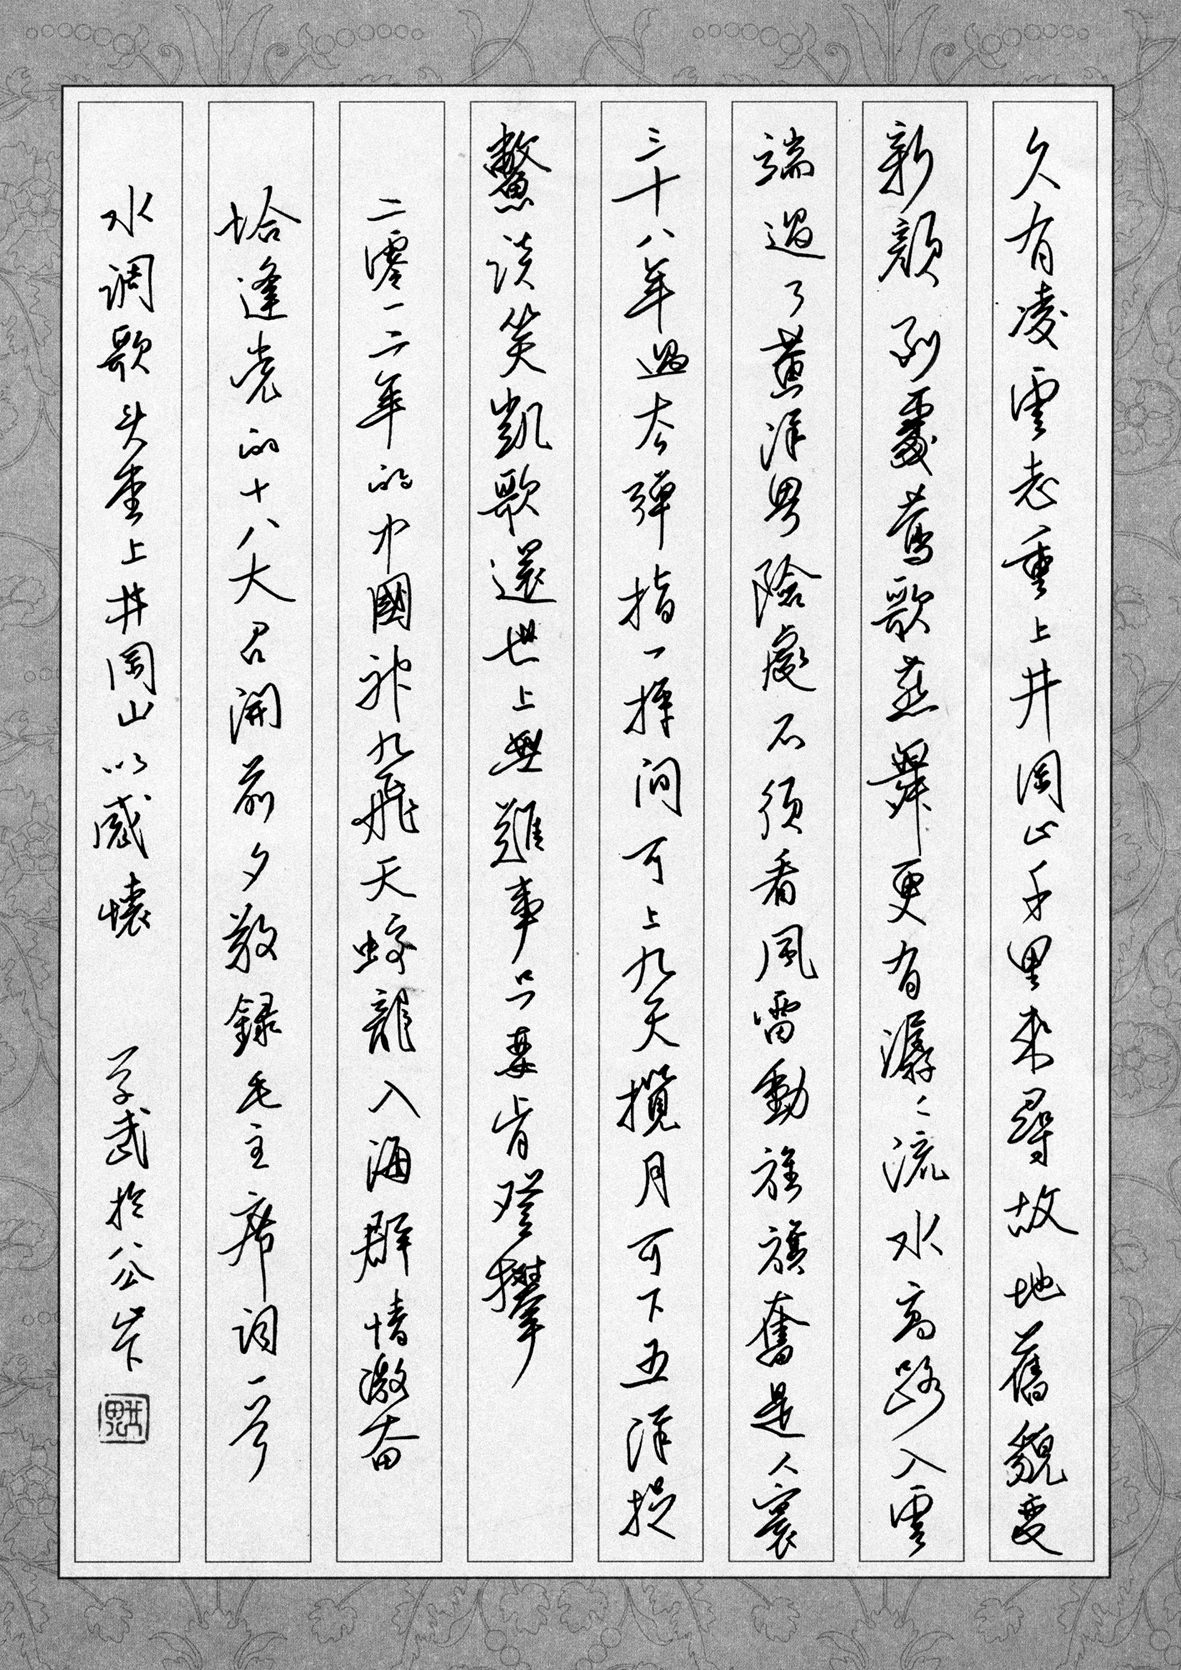 久有凌雲志重上井岡山千里来尋故地舊貌变
新顔到處莺歌燕舞更有潺〻流水高路入雲
端過了黄洋界險處不须看風雷動旌旗奮是人寰
三十八年過去弹指一揮间可上九天攬月可下五洋捉
鳖谈笑凱歌還世上無難事只要肯登攀
二零一二年的中國神九飛天蛟龍入海群情激奋
恰逢党的十八大召開前夕敬録毛主席词一首
水调歌头重上井岡山以感懷 学武於公安